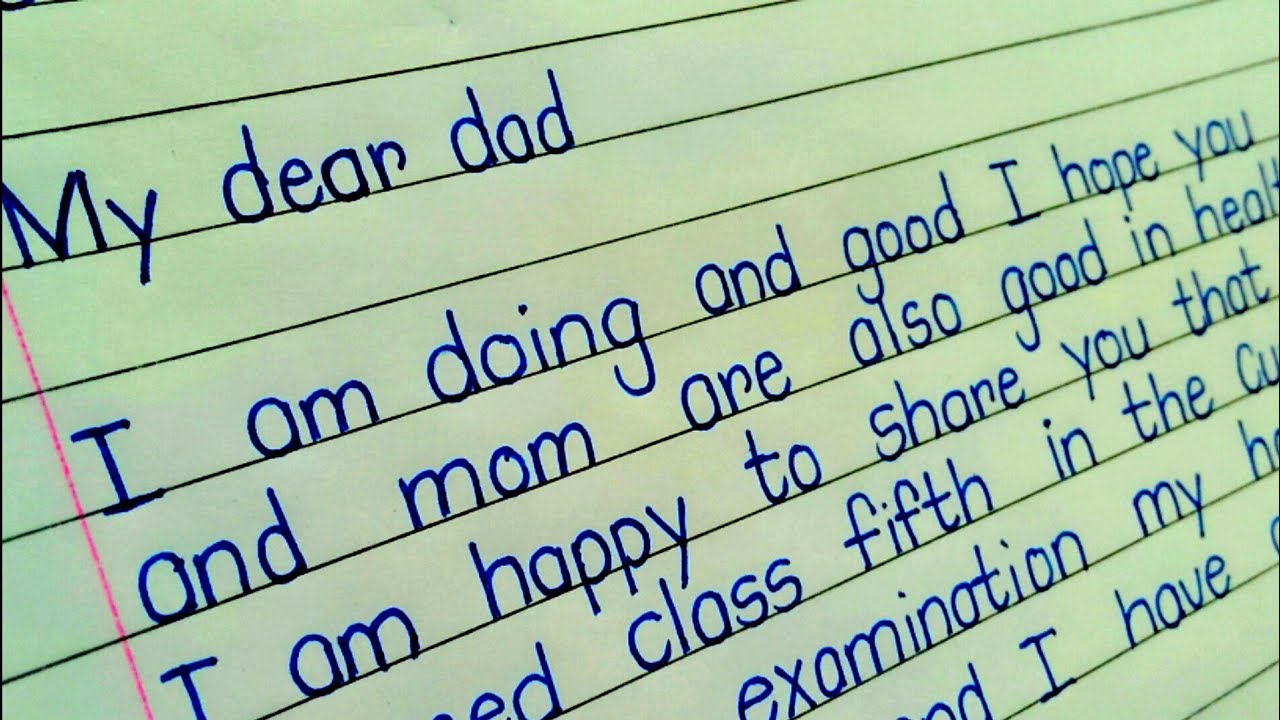 My dear dad
I am doing and good I hope you
and mom are also good in healt
I am happy to share you that
ed class fifth in the cu
examination my
nd I have